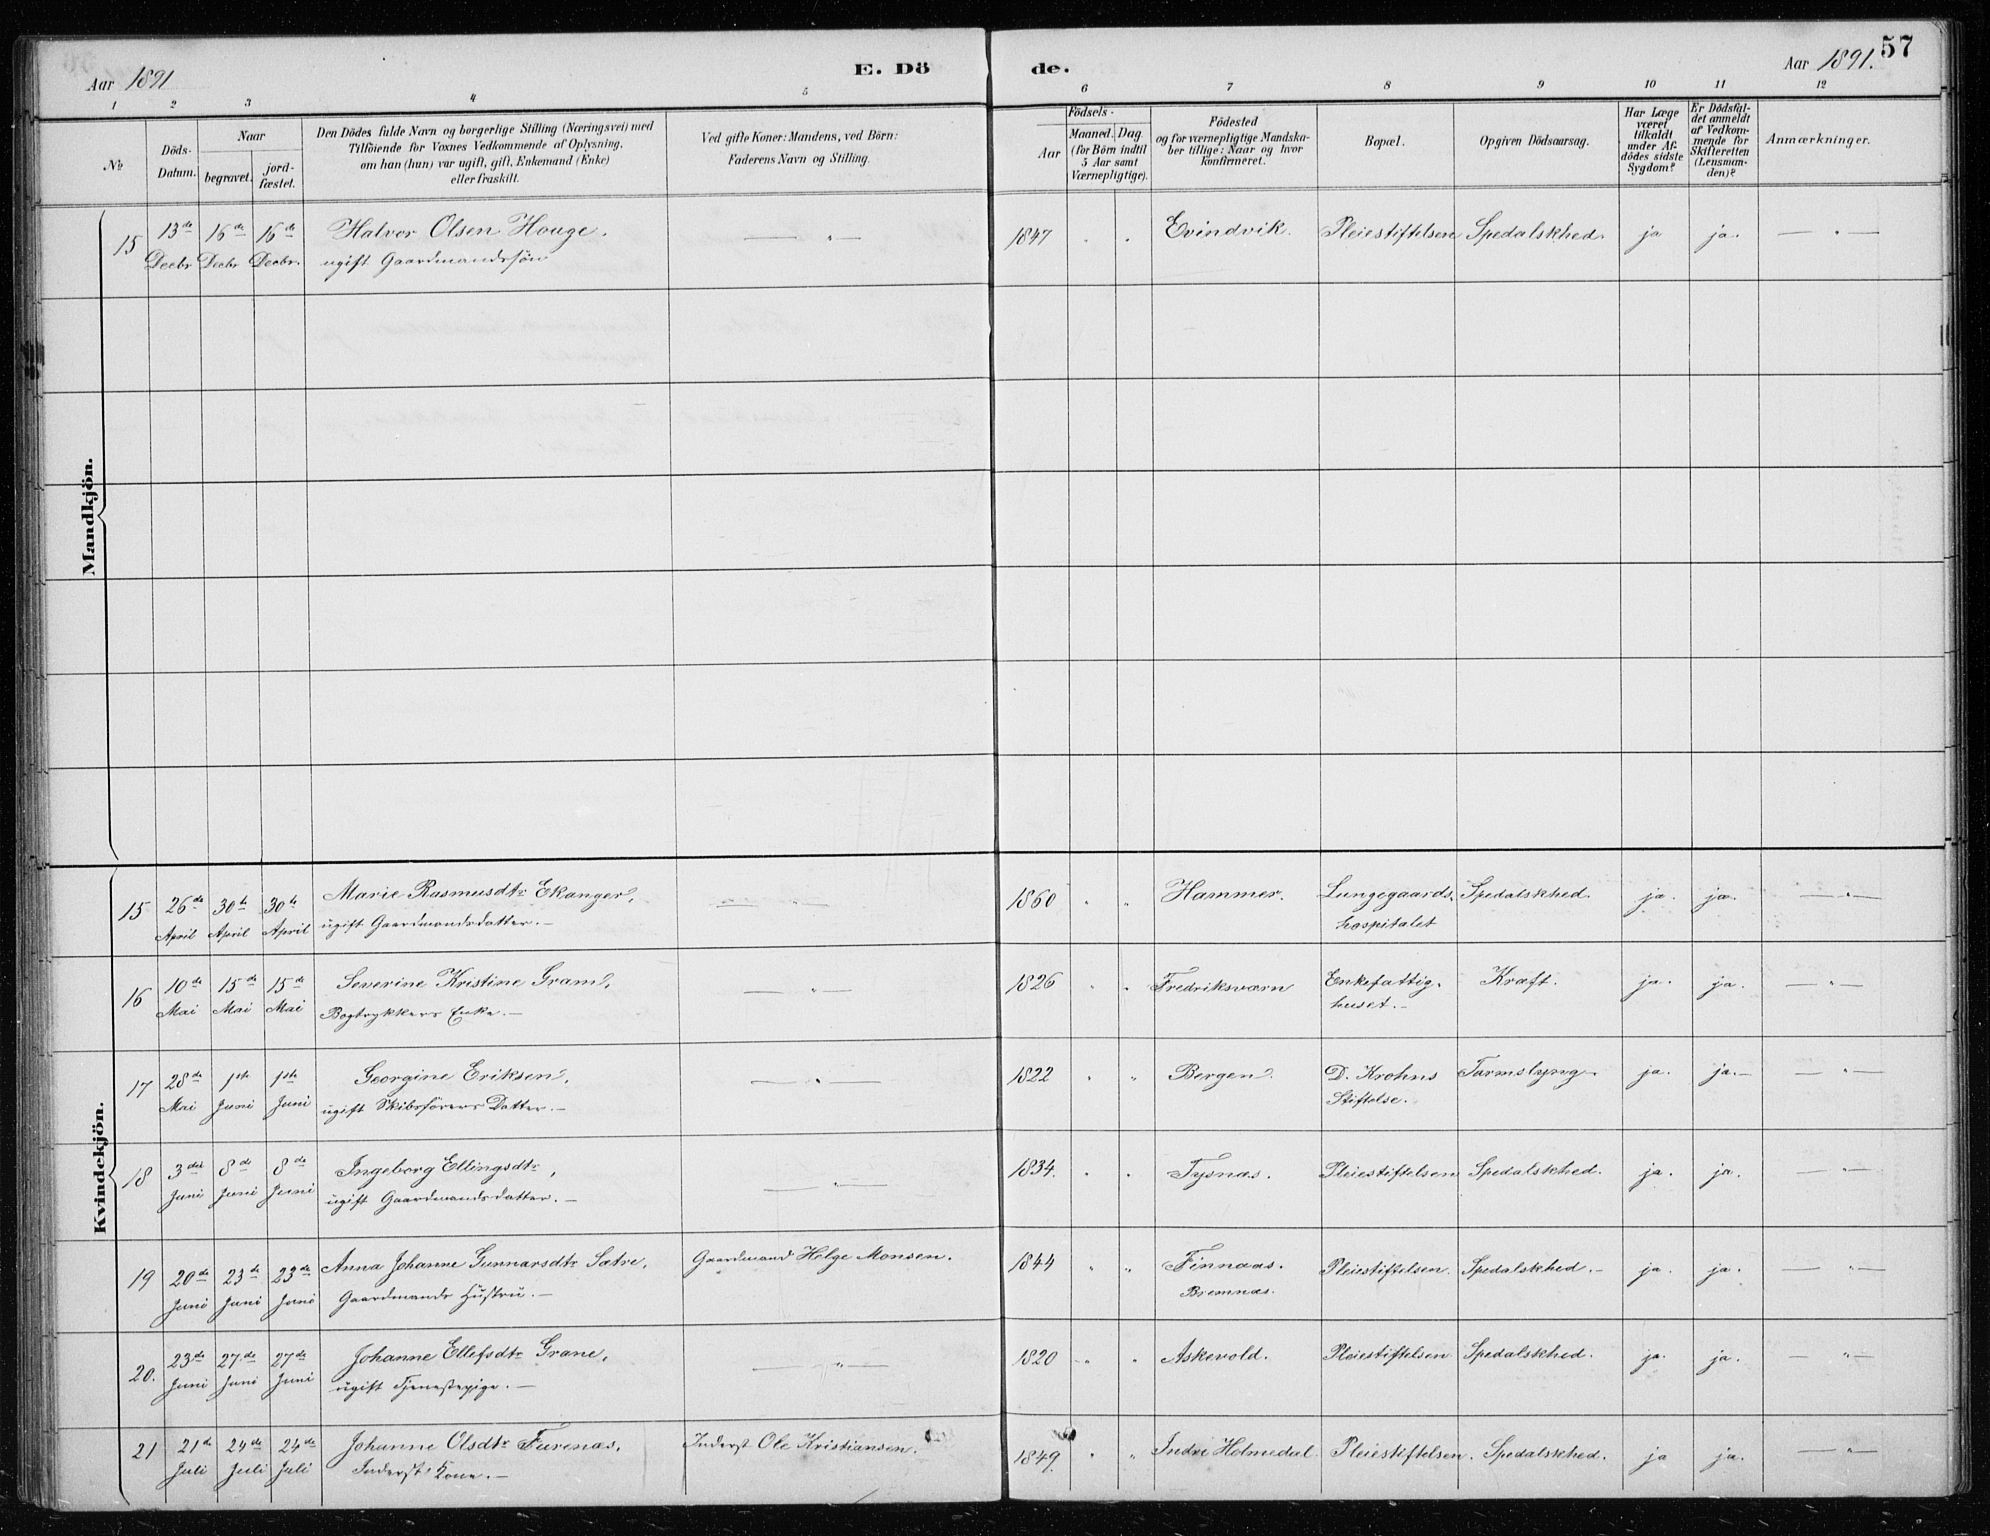 Aar 1891
E. Dö
de.
Aar 1891.
57
1 2 3 4 5 6 7 8 9 10 11 12
№
Döds-
Datum.
Naar
begravet.
jord-
fæstet.
Den Dödes fulde Navn og borgerlige Stilling (Næringsvei) med
Tilföiende for Voxnes Vedkommende af Oplysning,
om han (hun) var ugift, gift, Enkemand (Enke)
eller fraskilt.
Ved gifte Koner: Mandens, ved Börn:
Faderens Navn og Stilling.
Födsels-
Aar
Maaned. Dag.
(for Börn indtil
5 Aar samt
Værnepligtige).
Födested
og for værnepligtige Mandska-
ber tillige: Naar og hvor
konfirmeret.
Bopæl.
Opgiven Dödsaarsag.
Har Læge
været
tilkaldt
under Af-
dödes sidste
Sygdom?
Er Dödsfal-
det anmeldt
af Vedkom-
mende for
Skifteretten
(Lensman-
den)?
Anmærkninger.
Mandkjön.
15 13de 16de 16de Halvor Olsen Houge, — " — 1847 " " Evindvik. Pleiestiftelsen Spedalskhed. ja ja. — " —
Decbr Decbr Decbr. ugift Gaardmandssön
Kvindekjön.
15 26de 30te 30te Marie Rasmusdtr Ekanger, — " — 1860 " " Hammer. Lungegaards- Spedalskhed. ja. ja. — " —
April April April ugift Gaardmandsdatter. — hospitalet
16 10de 15de 15de Severine Kristine Gram, — " — 1826 " " Fredriksværn Enkefattig- Kræft. ja. ja. — " —
Mai Mai Mai Bogtrykkers Enke. — huset. —
17 28de 1ste 1ste Georgine Eriksen, — " — 1822 " " Bergen. D. Krohns Tarmslyng. ja. ja. — — " —
Mai Juni Juni ugift Skibsförers Datter. — Stiftelse.
18 3die 8de 8de Ingeborg Ellingsdtr, — " — 1834. " " Tysnæs. Pleiestiftelsen Spedalskhed. ja. ja. — " —
Juni Juni Juni ugift Gaardmandsdatter. —
19 20de 23de 23de Anna Johanne Gunnarsdtr Sætre, Gaardmand Helge Monsen. 1844 " " Finnaas. Pleiestiftelsen. Spedalskhed. — ja. ja. — " —
Juni Juni Juni Gaardmands Hustru. — Bremnæs.
20. 23de 27de 27de Johanne Ellefsdtr Grane, — " — 1820 " " Askevold. Pleiestiftelsen Spedalskhed. ja. ja. — " —
Juni Juni Juni ugift Tjenestepige. —
21 21de 24de 24de Johanne Olsdtr Furenæs, Inderst Ole Kristiansen. 1849. " " Indre Holmedal. Pleiestiftelsen. Spedalskhed. ja ja. — " —
Juli Juli Juli Inderst Kone. —